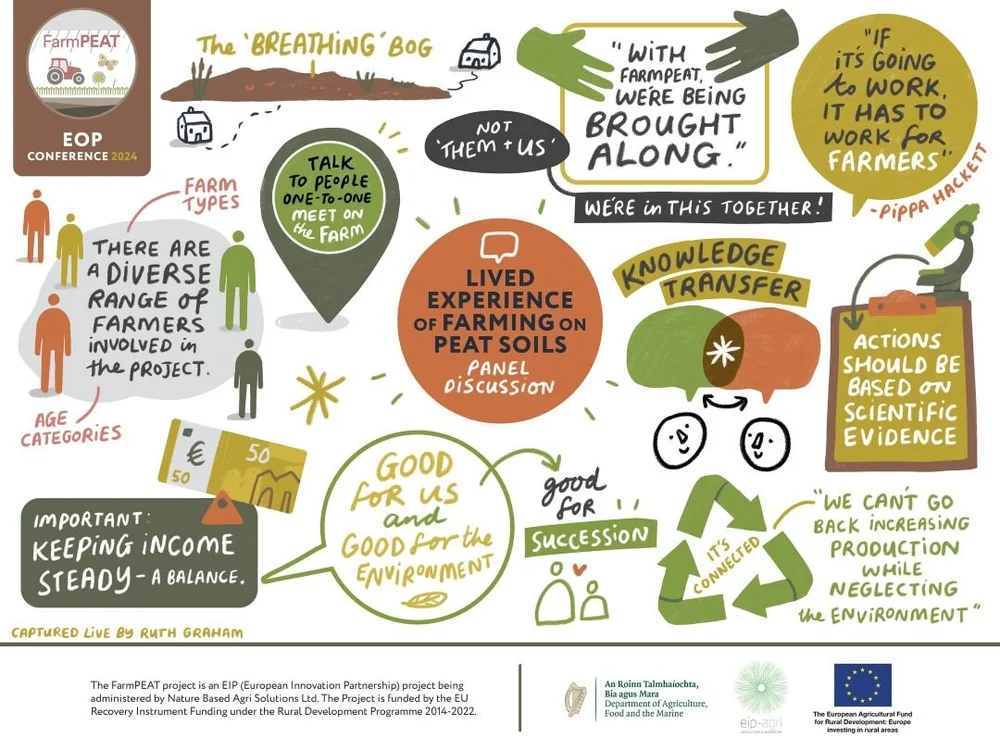 FarmPEAT
EOP
CONFERENCE 2024
The 'BREATHING' BOG
NOT
'THEM + US'
"WITH
FARMPEAT,
WE'RE BEING
BROUGHT
ALONG."
WE'RE in THIS TOGETHER!
"IF
iT'S GOING
to WORK,
IT HAS TO
WORK for
FARMERS"
-PiPPA HACKETT
TALK
TO PEOPLE
ONE-TO-ONE
MEET ON
the FARM
FARM
TYPES
THERE ARE
A DIVERSE
RANGE OF
FARMERS
iNVOLVED in
the PROJECT.
AGE
CATEGORIES
LIVED
EXPERIENCE
OF FARMING ON
PEAT SOILS
PANEL
DiSCUSSiON
KNOWLEDGE
TRANSFER
ACTIONS
SHOULD BE
BASED ON
SCiENTiFiC
EViDENCE
€
50
50
iMPORTANT:
KEEPiNG iNCOME
STEADY - A BALANCE.
GOOD
for US
and
GOOD for the
ENVIRONMENT
good
for
SUCCESSION
IT'S
CONNECTED
"WE CAN'T GO
BACK INCREASING
PRODUCTION
WHILE
NEGLECTING
the ENVIRONMENT"
CAPTURED LiVE BY RUTH GRAHAM
The FarmPEAT project is an EIP (European Innovation Partnership) project being
administered by Nature Based Agri Solutions Ltd. The Project is funded by the EU
Recovery Instrument Funding under the Rural Development Programme 2014-2022.
An Roinn Talmhaíochta,
Bia agus Mara
Department of Agriculture,
Food and the Marine
eip-agri
The European Agricultural Fund
for Rural Development: Europe
investing in rural areas